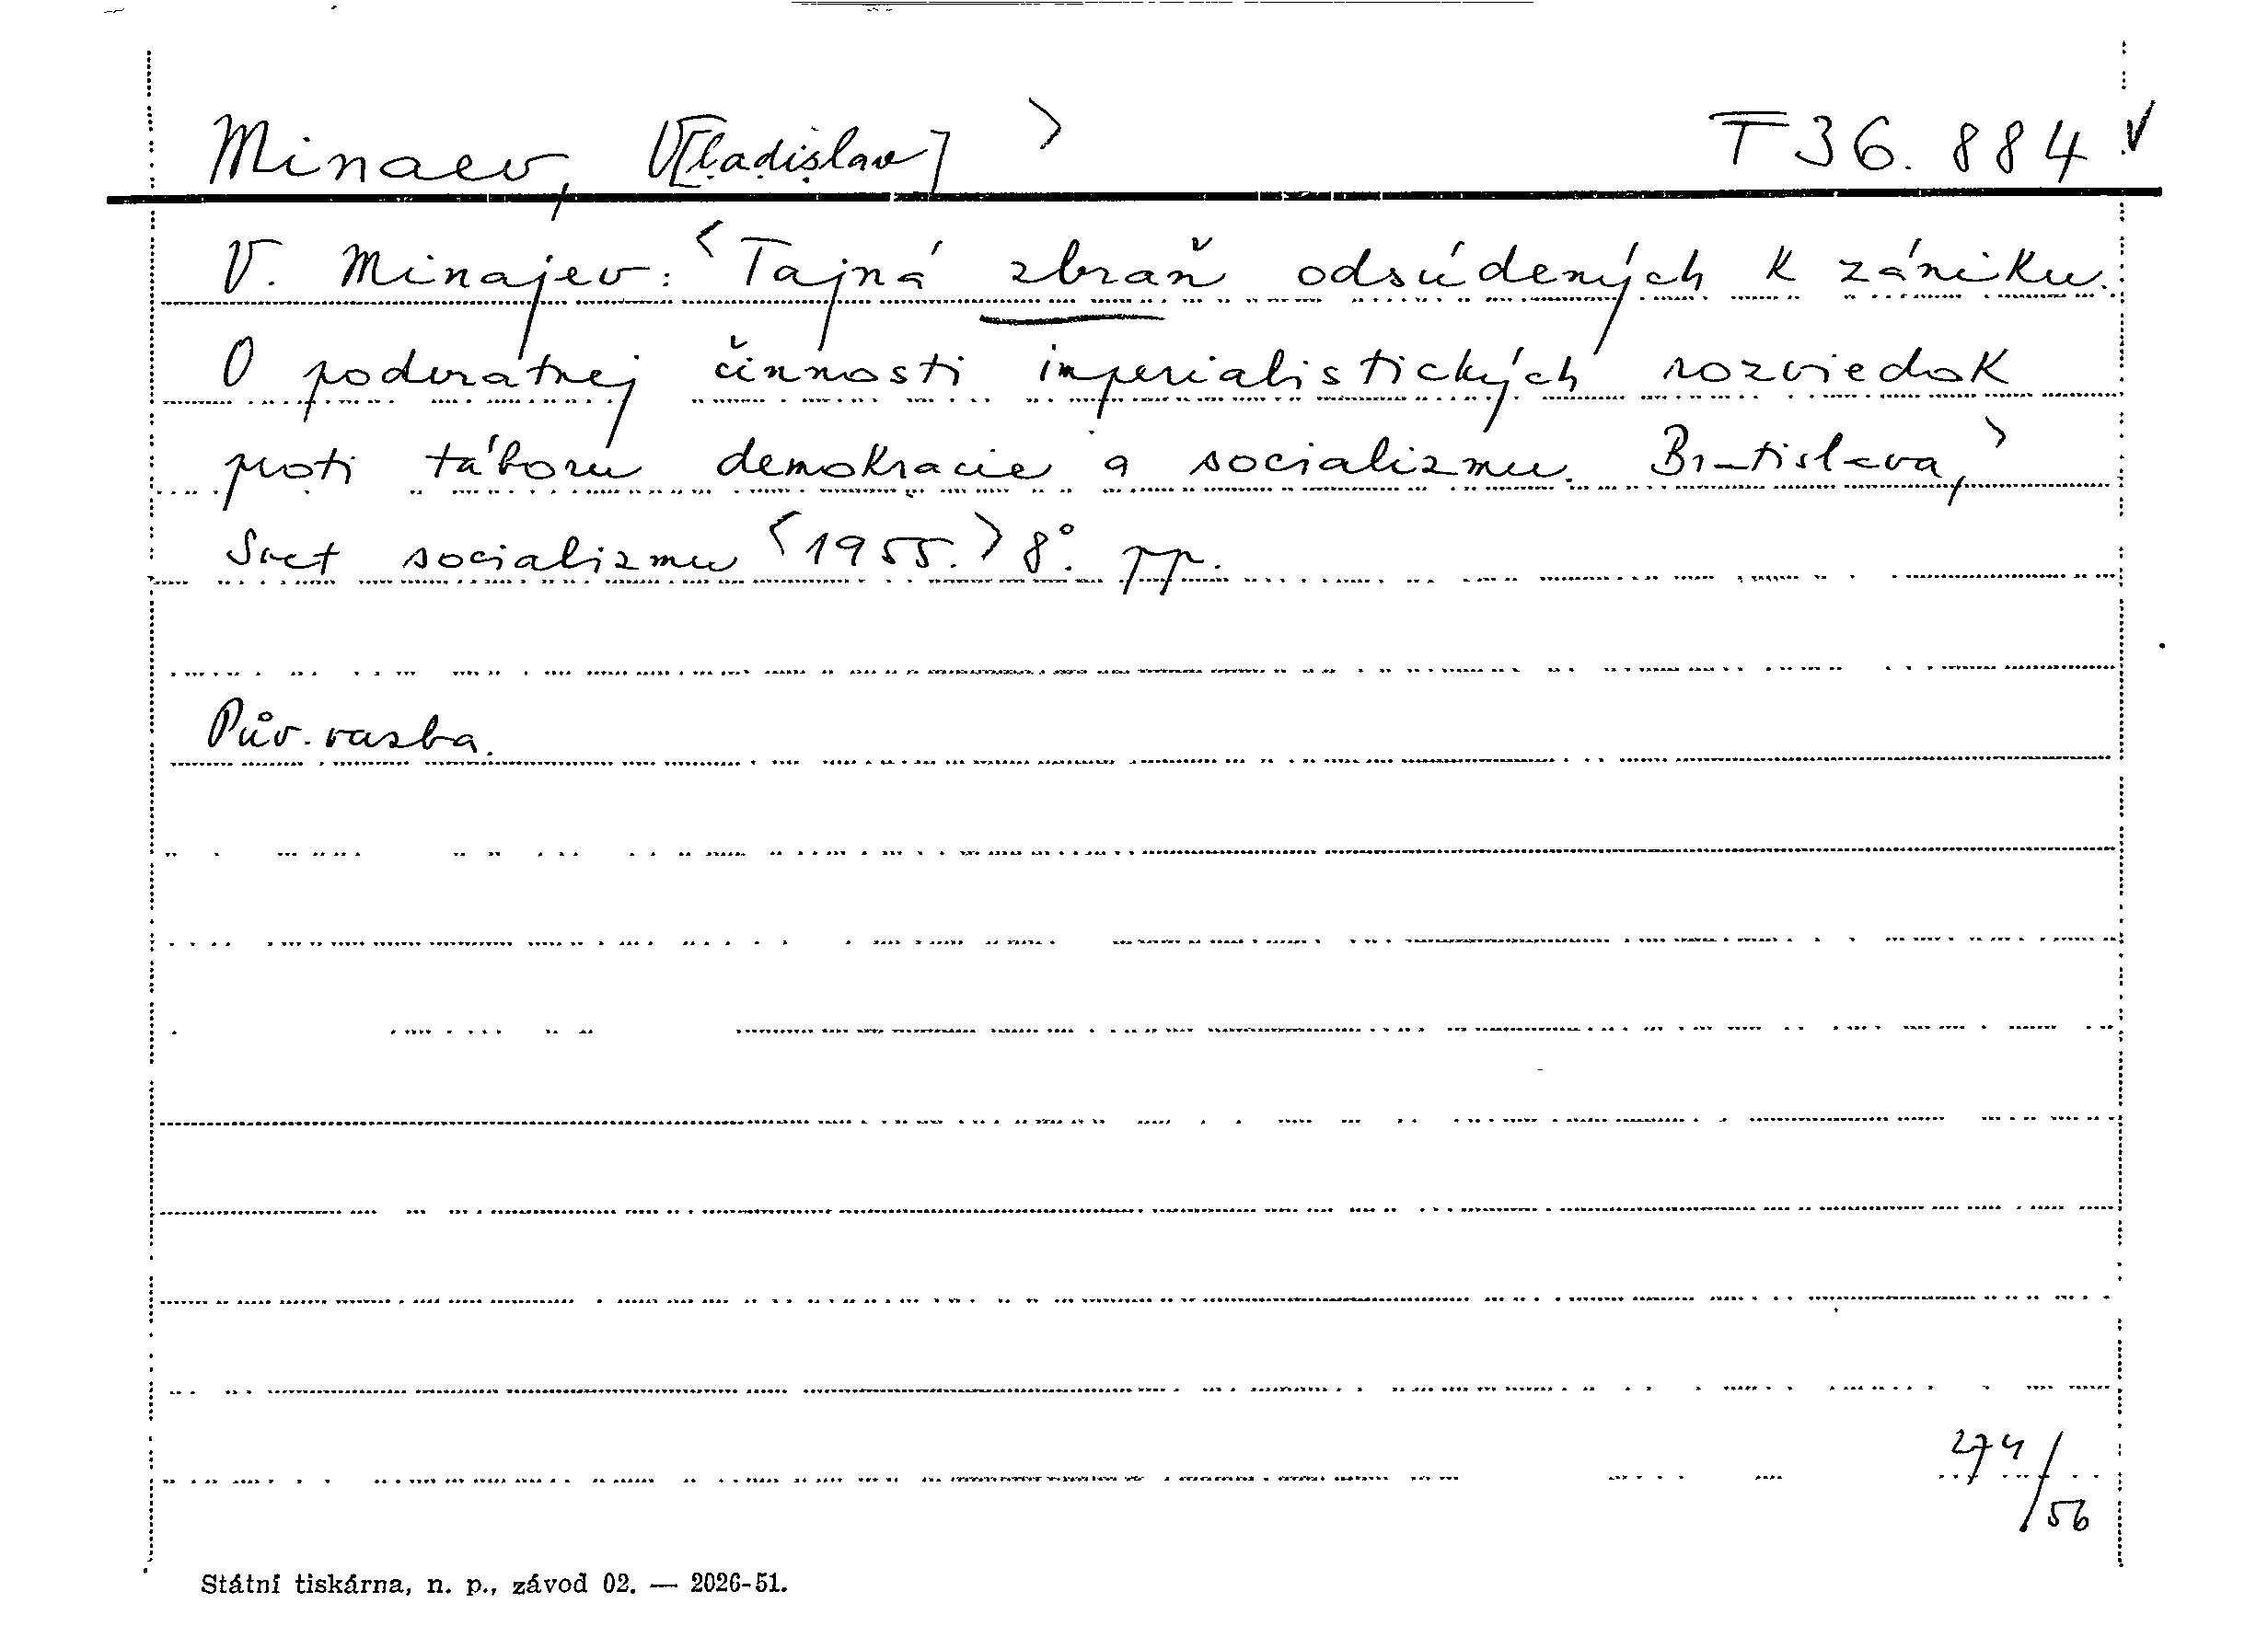 Minaev, V[ladislav] > T 36.884 √
V. Minajev: <Tajná zbraň odsúdených k zániku.
O podvratnej činnosti imperialistických rozviedok
proti táboru demokracie a socializmu. Bratislava,>
Svet socializmu <1955.> 8°. pp.
Pův. vazba.
274/56
Státní tiskárna, n. p., závod 02. — 2026-51.